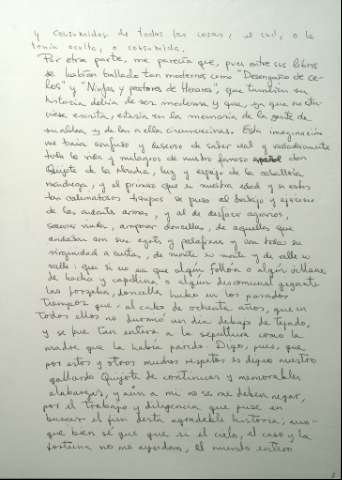 y consumidor de todas las cosas, el cual, o la
tenía oculta, o consumida.
Por otra parte, me parecía que, pues entre sus libros
se habían hallado tan modernos como "Desengaño de ce-
los" y "Ninfas y pastores de Henares", que también su
historia debía de ser moderna y que, ya que no estu-
viese escrita, estaría en la memoria de la gente de
su aldea y de las a ella circunvecinas. Esta imaginación
me traía confuso y deseoso de saber real y verdaderamente
toda la vida y milagros de nuestro famoso español don
Quijote de la Mancha, luz y espejo de la caballería
manchega, y el primero que en nuestra edad y en estos
tan calamitosos tiempos se puso al trabajo y ejercicio
de las andantes armas, y al de desfacer agravios,
socorrer viudas, amparar doncellas, de aquellas que
andaban con sus azotes y palafrenes y con toda su
virginidad a cuestas, de monte en monte y de valle en
valle; que si no era que algún follón o algún villano
de hacha y capellina o algún descomunal gigante
las forzaba, doncella hubo en los pasados
tiempos que, al cabo de ochenta años, que en
todos ellos no durmió un día debajo de tejado,
y se fue tan entera a la sepultura como la
madre que la había parido. Digo, pues, que
por estos y otros muchos respetos es digno nuestro
gallardo Quijote de continuas y memorables
alabanzas, y aún a mí no se me deben negar,
por el trabajo y diligencia que puse en
buscar el fin desta agradable historia; aun-
que bien sé que que si el cielo, el caso y la
fortuna no me ayudaran, el mundo entero